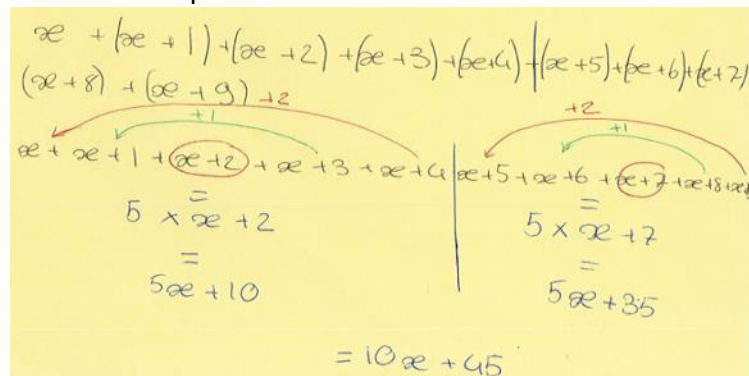 x + (x + 1) + (x + 2) + (x + 3) + (x + 4) + (x + 5) + (x + 6) + (x + 7)
(x + 8) + (x + 9)
+2 +2
+1 +1
x + x + 1 + x + 2 + x + 3 + x + 4 | x + 5 + x + 6 + x + 7 + x + 8 + x
= =
5 × x + 2 5 × x + 7
= =
5x + 10 5x + 35
= 10x + 45